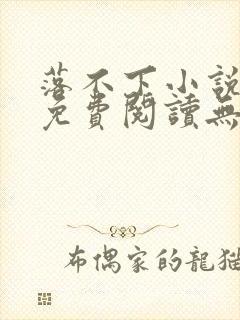 落不下小說
免費閱讀無
布偶家的龍貓